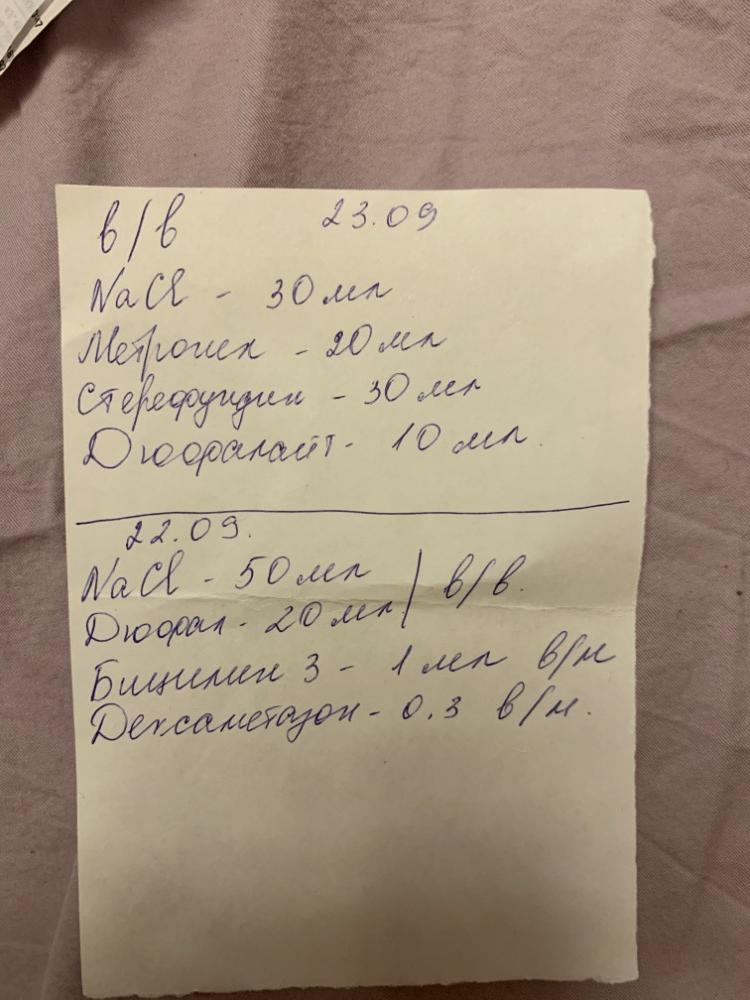 в/в 23.09
NaCl - 30 мл
Метрогил - 20 мл
Стерефундин - 30 мл
Дюфалайт - 10 мл.
22.09.
NaCl - 50 мл / в/в.
Дюфал - 20 мл
Бицилин 3 - 1 мл в/м
Дексаметазон - 0.3 в/м.